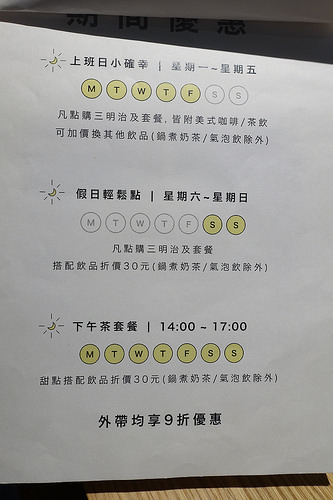 期間優惠
上班日小確幸 | 星期一~星期五
M T W T F S S
凡點購三明治及套餐, 皆附美式咖啡/茶飲
可加價換其他飲品(鍋煮奶茶/氣泡飲除外)
假日輕鬆點 | 星期六~星期日
M T W T F S S
凡點購三明治及套餐
搭配飲品折價30元(鍋煮奶茶/氣泡飲除外)
下午茶套餐 | 14:00 ~ 17:00
M T W T F S S
甜點搭配飲品折價30元(鍋煮奶茶/氣泡飲除外)
外帶均享9折優惠